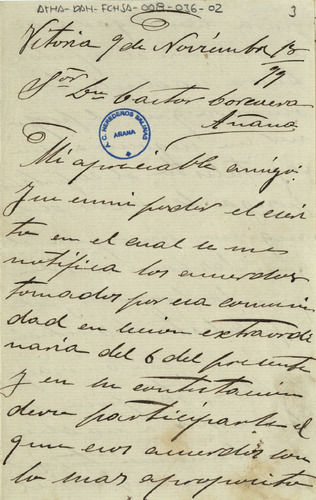 ATHA-DAH-FCHSA-008-036-02
3
Vitoria 9 de Noviembre 18
99
Sor Dn Castor Corcuera
Añana
A.C. HEREDEROS SALINAS
AÑANA
Mi apreciable amigo:
en mi poder el escri
to en el cual se me
notifica los acuerdos
tomados por esa comuni
dad en sesion extraordi
naria del 6 del presente
y en su contestacion
devo participarle el
que esos acuerdos son
lo mas aproposito